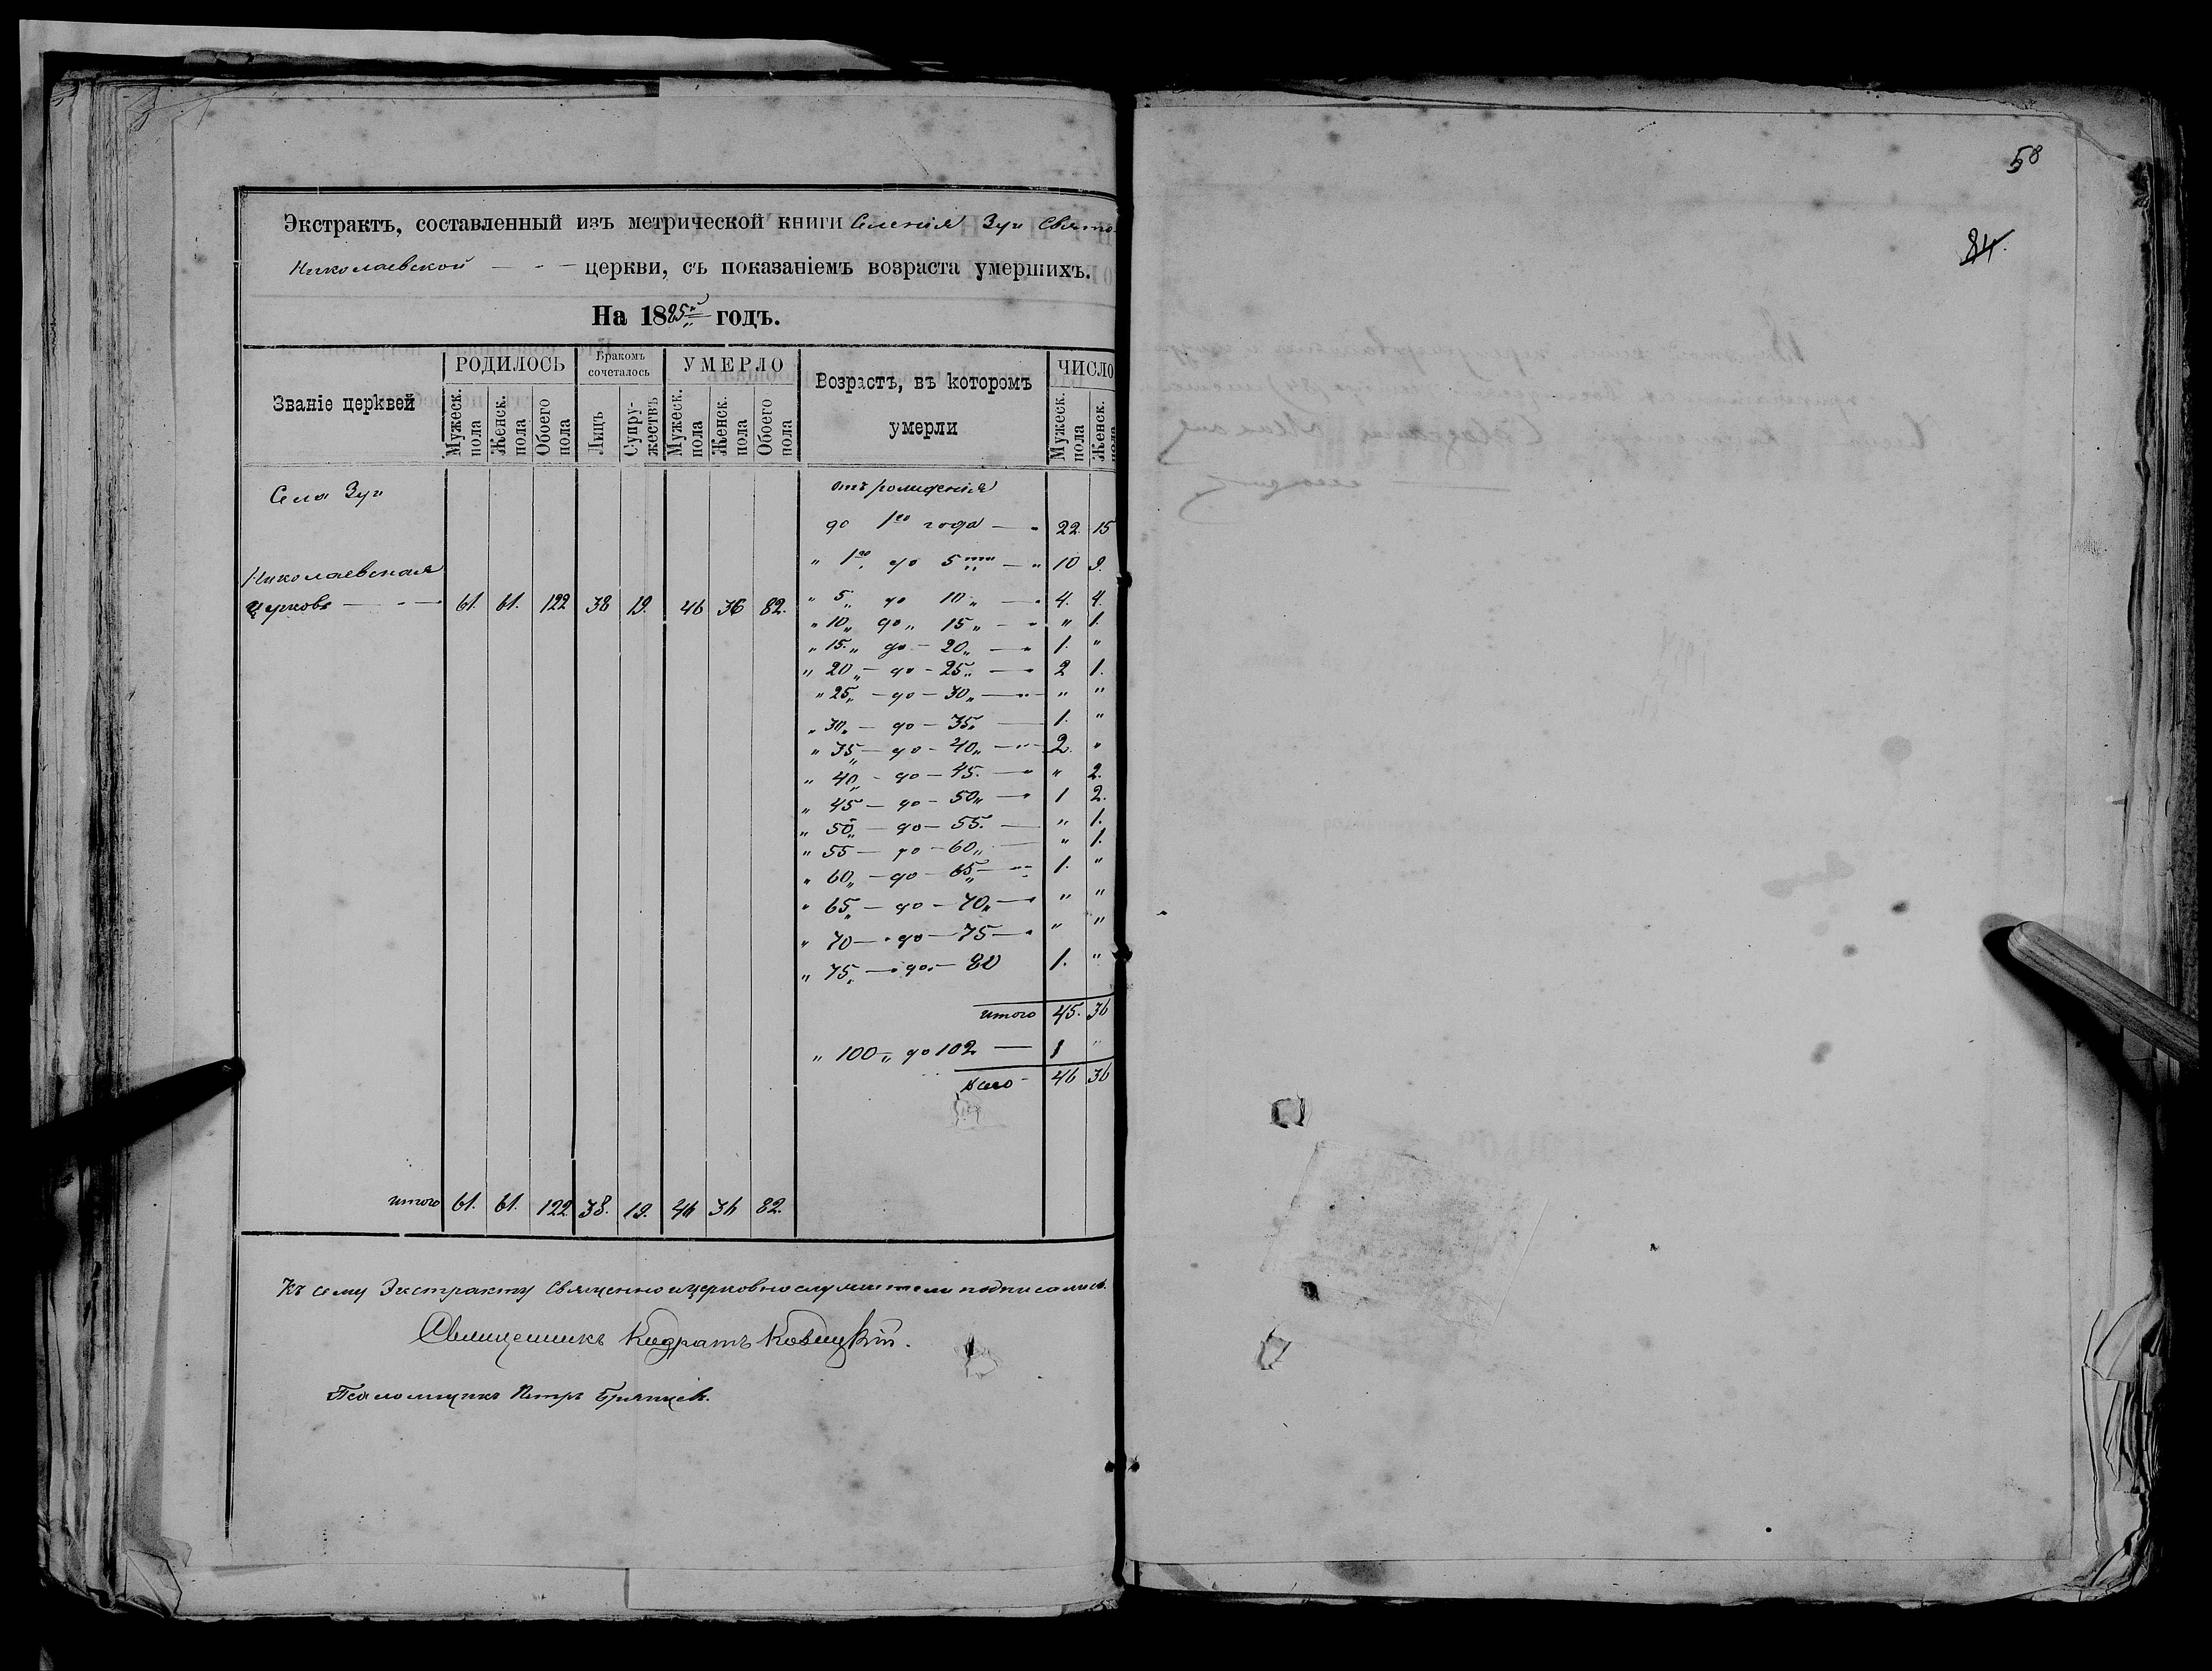 58
84.
Экстрактъ, составленный изъ метрической книги Селенія Зуи Свято-
Николаевской — " — церкви, съ показаніемъ возраста умершихъ.
На 1825 годъ.
Званіе церквей | РОДИЛОСЬ | Бракомъ сочеталось | УМЕРЛО | Возрастъ, въ которомъ умерли | ЧИСЛО
Мужеск. пола | Женск. пола | Обоего пола | Лицъ | Супружествъ | Мужеск. пола | Женск. пола | Обоего пола | Мужеск. пола | Женск. пола
Села Зуи
отъ рожденія
до 1го года — " 22. 15
" 1го до 5ти — " 10 9.
Николаевская
Церковь — " — 61. 61. 122 38 19. 46 36 82.
" 5 " до 10 " — " 4. 4.
" 10 " до " 15 " — " " 1.
" 15 " до — 20 " — " 1. "
" 20 " — до — 25 " — " 2 1.
" 25 " — до — 30 " — " — " "
" 30 " — до — 35 " — 1. "
" 35 " — до — 40 " — " — 2. "
" 40 " — до — 45. — " " 2.
" 45 — до — 50 " — " 1 2.
" 50 " — до — 55. — " 1.
" 55 — до — 60 " — " 1.
" 60 " — до — 65 " — " — 1. "
" 65 " — до — 70 " — " " "
" 70 — " до — 75 — " " "
" 75 " — " до — 80 1. "
итого 45. 36
" 100 " до 102 — 1 "
всего — 46 36
итого 61. 61. 122 38. 19. 46 36 82.
Къ сему Экстракту Священно и церковнослужители подписались.
Священникъ
Псаломщикъ Петръ